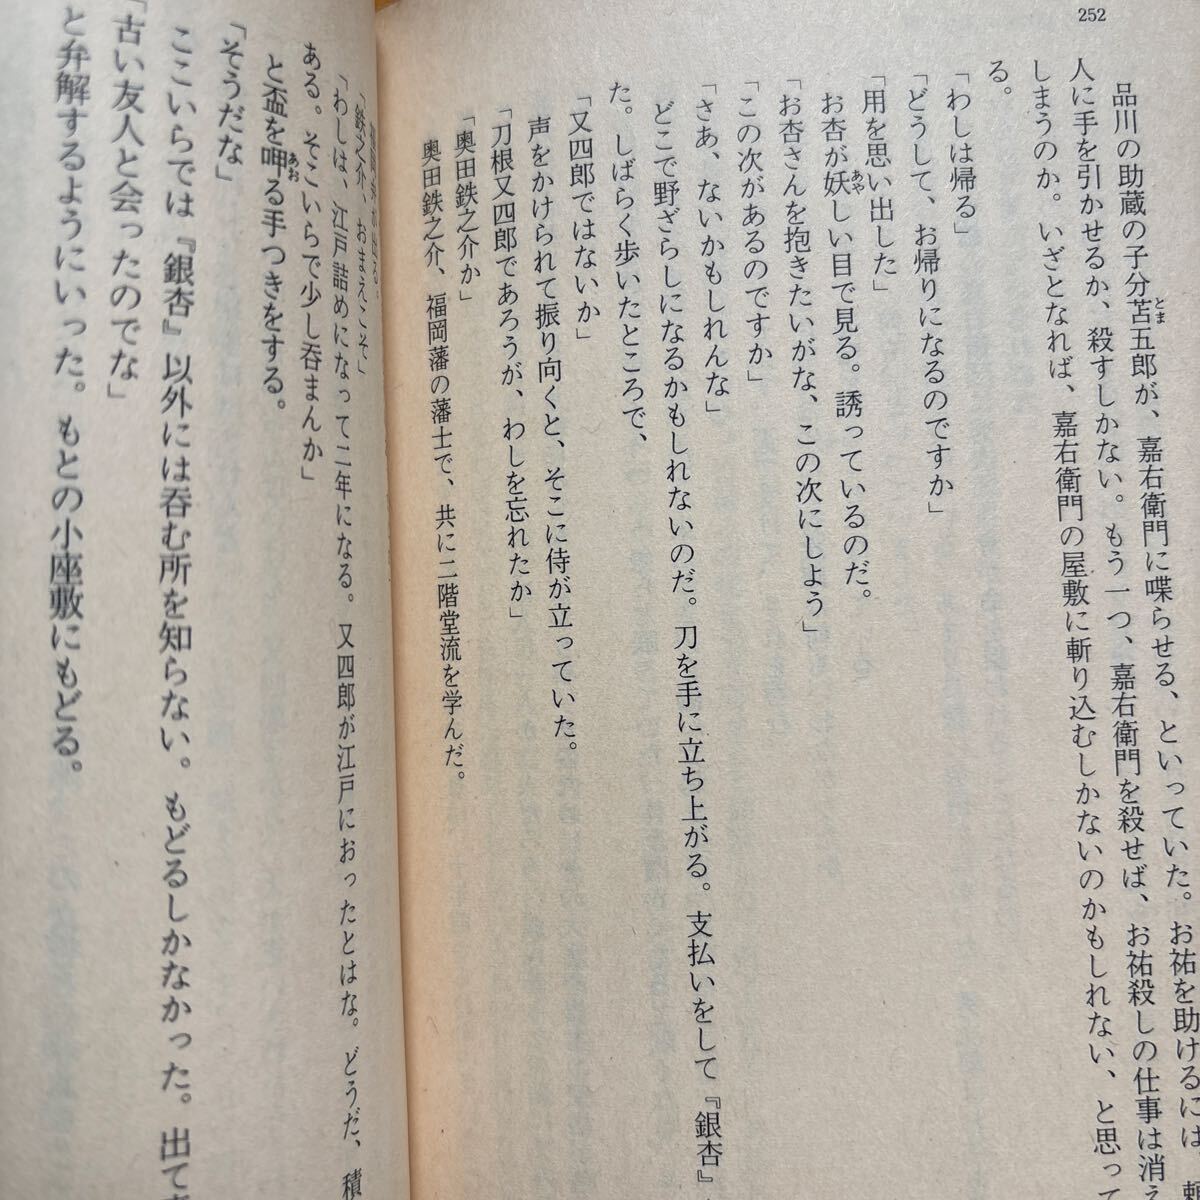 252
品川の助蔵の子分苫五郎が、嘉右衛門に喋らせる、といっていた。お祐を助けるには、
人に手を引かせるか、殺すしかない。もう一つ、嘉右衛門を殺せば、お祐殺しの仕事は消え
しまうのか。いざとなれば、嘉右衛門の屋敷に斬り込むしかないのかもしれない、と思って
る。
「わしは帰る」
「どうして、お帰りになるのですか」
「用を思い出した」
お杏が妖しい目で見る。誘っているのだ。
「お杏さんを抱きたいがな、この次にしよう」
「この次があるのですか」
「さあ、ないかもしれんな」
どこで野ざらしになるかもしれないのだ。刀を手に立ち上がる。支払いをして『銀杏』
た。しばらく歩いたところで、
「又四郎ではないか」
声をかけられて振り向くと、そこに侍が立っていた。
「刀根又四郎であろうが、わしを忘れたか」
「奥田鉄之介か」
奥田鉄之介、福岡藩の藩士で、共に二階堂流を学んだ。
「鉄之介、おまえこそ」
「わしは、江戸詰めになって二年になる。又四郎が江戸におったとはな。どうだ、積
ある。そこいらで少し呑まんか」
と盃を呷る手つきをする。
「そうだな」
ここいらでは『銀杏』以外には呑む所を知らない。もどるしかなかった。出て
「古い友人と会ったのでな」
と弁解するようにいった。もとの小座敷にもどる。